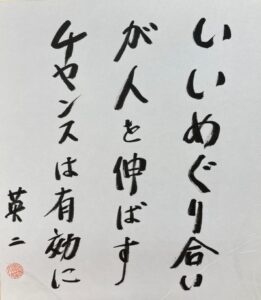 いいめぐり合い
が人を伸ばす
チャンスは有効に
英二